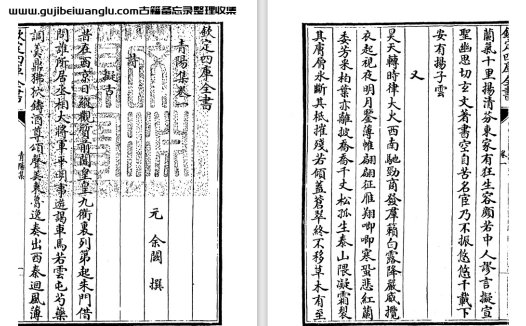 www.gujibeiwanglu.com古籍备忘录整理收集
欽定四庫全書
青陽集卷一
元 余闕 撰
詩
擬古
昔在西京日縱觀質前聞皇皇九衢裏列第起朱門借
問誰所居丞相大將軍平明事遊謁車馬若雲屯芍藥
調美鼎狒狄鑄酒尊頌聲美東魯逸奏出西秦迴風薄
欽定四庫全書
青陽集
欽定四庫全書
蘭氣十里揚清芬東家有狂生容顏若中人謬言擬宣
聖幽思切玄文著書空自苦名宦乃不振悠悠千載下
安有揚子雲
又
昊天轉時律大火西南馳勁商發羣籟白露降嚴威攬
衣起視夜明月鑒薄帷翩翩征雁翔唧唧寒螿悲紅蘭
委芳采柏葉亦離披喬喬千丈松孤生泰山隈凝霜裂
其膚層氷斷其枝摧殘若傾蓋蒼翠終不移草木有至